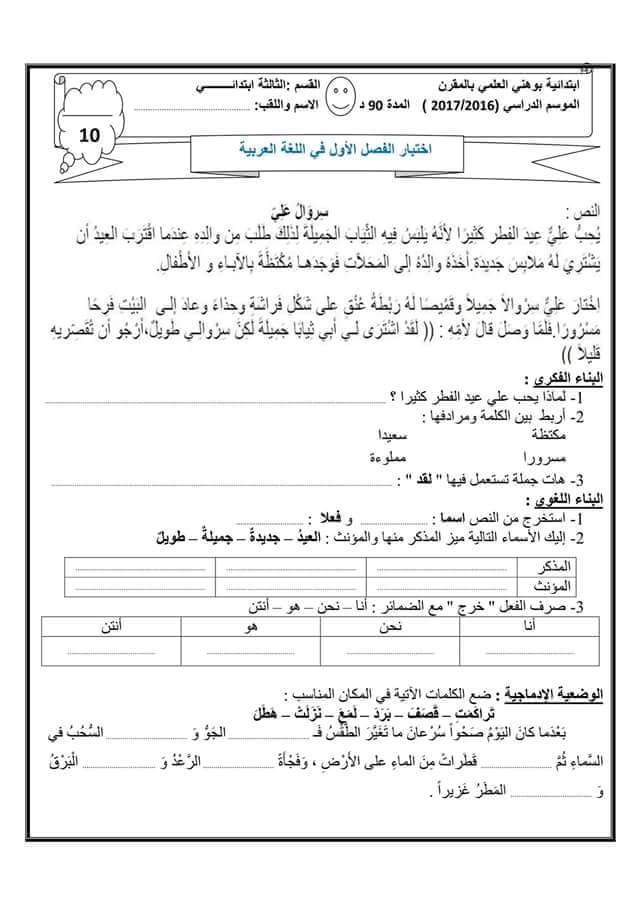 ابتدائية بوهني العلمي بالمقرن
القسم :الثالثة ابتدائـــــــي
الموسم الدراسي (2017/2016 )
المدة 90 د
الاسم واللقب: ........................................
10
اختبار الفصل الأول في اللغة العربية
النص :
سِروَالُ عَلِيّ
يُحِبُّ عَلِيٌّ عِيدَ الفِطرِ كَثِيرًا لأَنَّهُ يَلبَسُ فِيهِ الثِّيَابَ الجَمِيلَةَ لِذَلِكَ طَلَبَ مِن والدِهِ عِندَما اقْتَرَبَ العِيدُ أن
يَشْتَرِيَ لَهُ مَلابِسَ جَدِيدَة.أخذَهُ والدُهُ إلى المَحَلاَّت فَوَجَدَهـا مُكْتَظَّةً بِالآبـاءِ و الأطْفَالِ.
اِخْتَارَ عَلِيٌّ سِرْوالاً جَمِيلاً وقَمِيصًا لَهُ رَبطَةُ عُنُقٍ على شَكْلِ فَراشَةٍ وحِذاءً وعادَ إلـى البَيْتِ فَرِحًا
مَسْرُورًا.فلَمَّا وَصَلَ قالَ لأمِّهِ : (( لَقَدْ اشْتَرَى لـي أبِي ثِيابًا جَمِيلَةً لَكِنّ سِرْوالـي طَوِيلٌ،أرْجُو أن تُقَصِّرِيهِ
قَلِيلاً ))
البناء الفكري :
1- لماذا يحب علي عيد الفطر كثيرا ؟ ........................................
2- أربط بين الكلمة ومرادفها :
مكتظة سعيدا
مسرورا مملوءة
3- هات جملة تستعمل فيها " لقد " : ........................................
البناء اللغوي :
1- استخرج من النص اسما : .................... و فعلا : ....................
2- إليك الأسماء التالية ميز المذكر منها والمؤنث : العيدُ – جديدةً – جميلةً – طويلٌ
المذكر
المؤنث
3- صرف الفعل " خرج " مع الضمائر : أنا – نحن – هو – أنتن
أنا نحن هو أنتن
الوضعية الإدماجية : ضع الكلمات الآتية في المكان المناسب :
تَراكَمَتِ – قَصَفَ – بَرَدَ – لَمَعَ – نَزَلَتْ – هَطَلَ
بَعْدَما كانَ اليَوْمُ صَحْواً سُرْعانَ ما تَغَيَّرَ الطَّقْسُ فَـ .................... الجَوُّ وَ .................... السُّحُبُ في
السَّماءِ ثُمَّ .................... قَطَراتٌ مِنَ الماءِ على الأرْضِ ، وَفَجْأةً .................... الرَّعْدُ وَ .................... الْبَرْقُ
وَ .................... المَطَرُ غَزيراً .